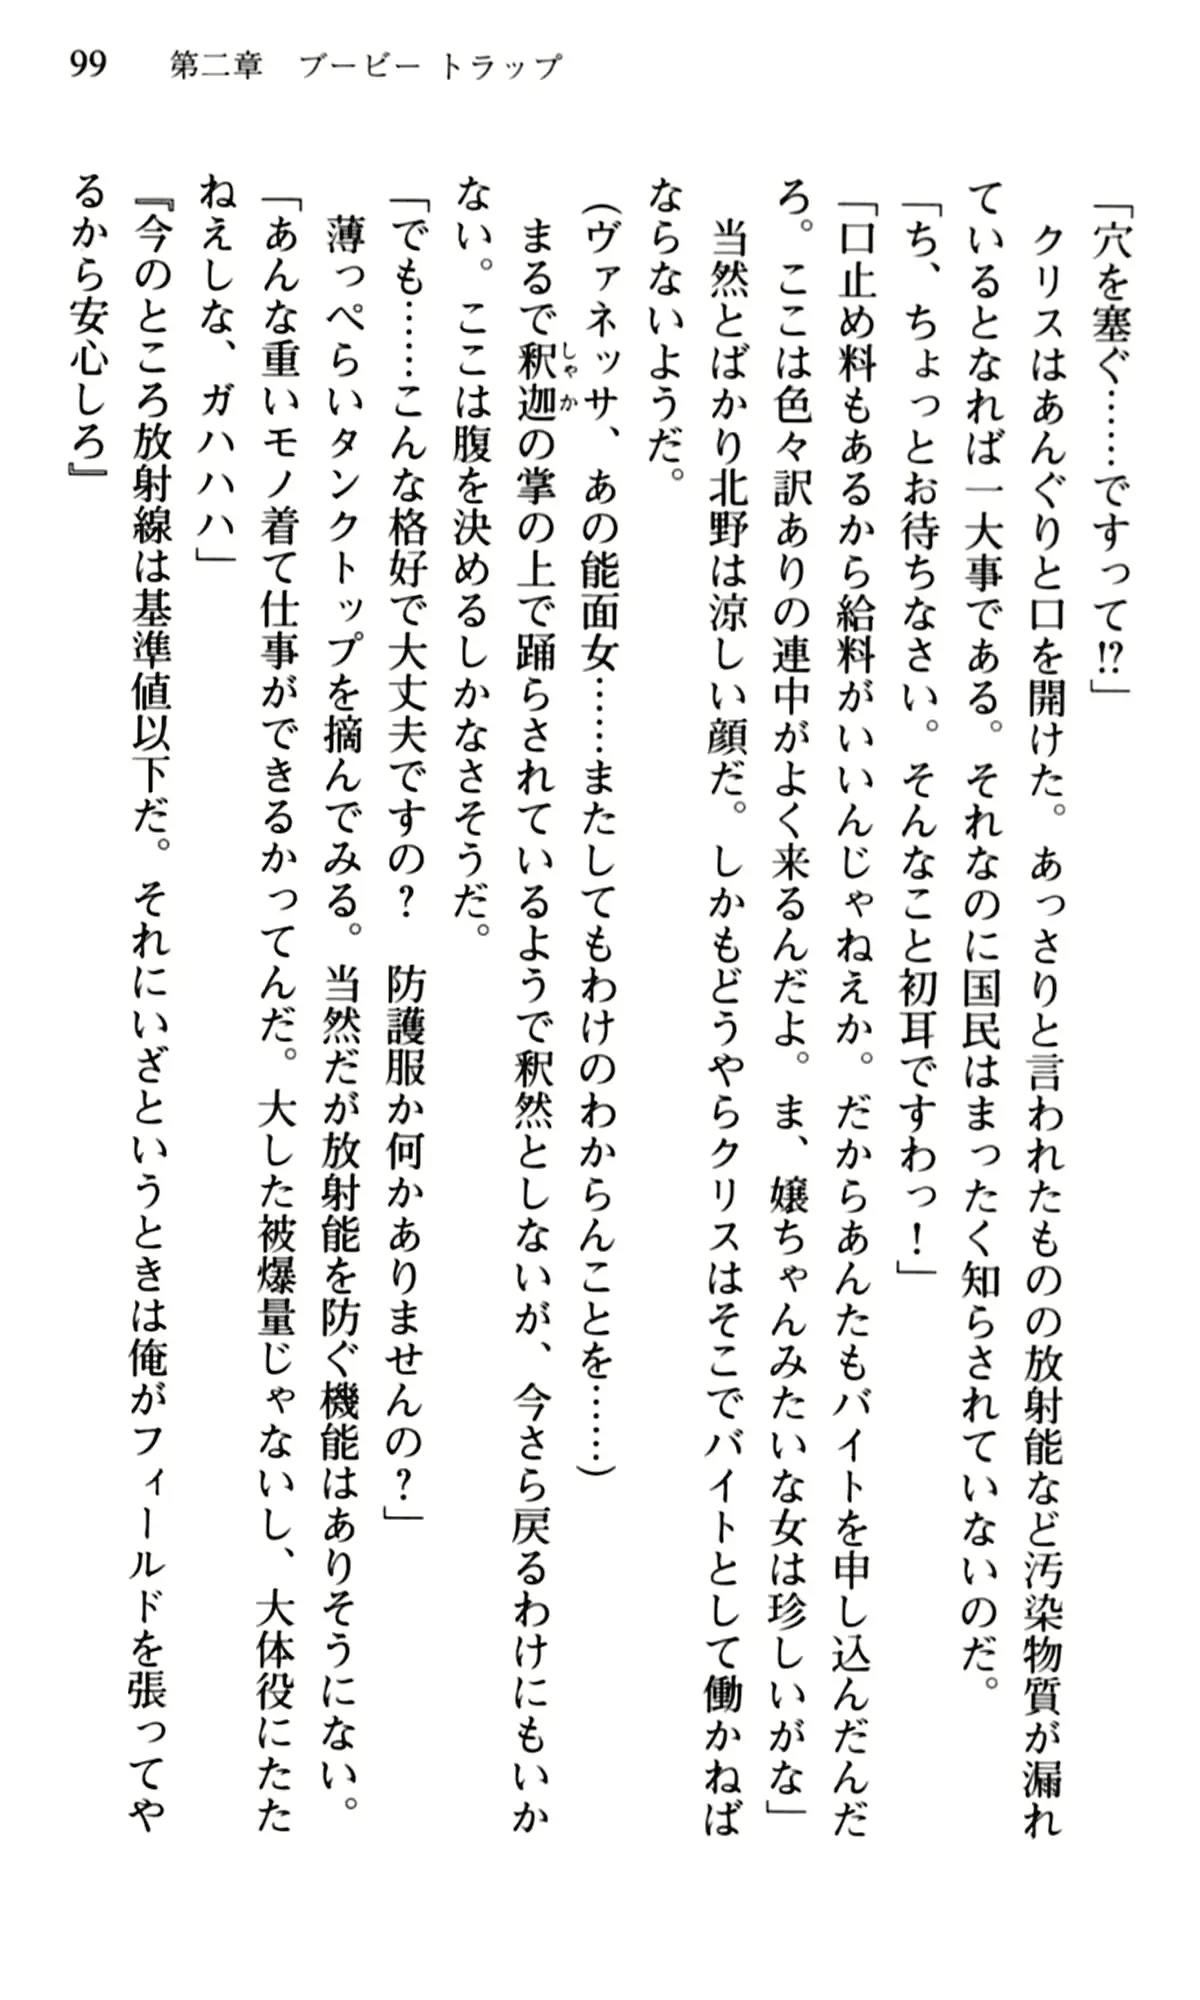 99　第二章　ブービートラップ
「穴を塞ぐ……ですって!?」
　クリスはあんぐりと口を開けた。あっさりと言われたものの放射能など汚染物質が漏れ
ているとなれば一大事である。それなのに国民はまったく知らされていないのだ。
「ち、ちょっとお待ちなさい。そんなこと初耳ですわっ！」
「口止め料もあるから給料がいいんじゃねえか。だからあんたもバイトを申し込んだんだ
ろ。ここは色々訳ありの連中がよく来るんだよ。ま、嬢ちゃんみたいな女は珍しいがな」
　当然とばかり北野は涼しい顔だ。しかもどうやらクリスはそこでバイトとして働かねば
ならないようだ。
（ヴァネッサ、あの能面女……またしてもわけのわからんことを……）
　まるで釈迦の掌の上で踊らされているようで釈然としないが、今さら戻るわけにもいか
ない。ここは腹を決めるしかなさそうだ。
「でも……こんな格好で大丈夫ですの？　防護服か何かありませんの？」
　薄っぺらいタンクトップを摘んでみる。当然だが放射能を防ぐ機能はありそうにない。
「あんな重いモノ着て仕事ができるかってんだ。大した被爆量じゃないし、大体役にたた
ねえしな、ガハハハ」
『今のところ放射線は基準値以下だ。それにいざというときは俺がフィールドを張ってや
るから安心しろ』